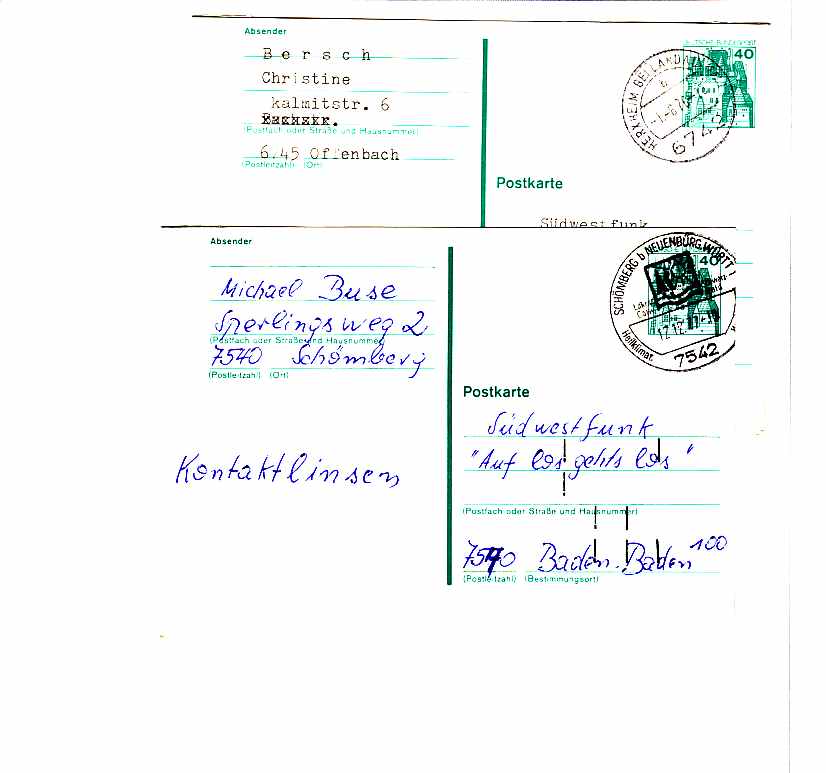 Absender
Bersch
Christine
kalmitstr. 6
(Postfach oder Straße und Hausnummer)
6.45 Offenbach
(Postleitzahl) (Ort)
DEUTSCHE BUNDESPOST
40
HERXHEIM B
674
Postkarte
Südwestfunk
Absender
Michael Buse
Sperlingsweg 2
(Postfach oder Straße und Hausnummer)
7540 Schömberg
(Postleitzahl) (Ort)
Kontaktlinsen
40
SCHÖMBERG b NEUENBÜRG, WÜRTT
Heilklimat.
7542
Postkarte
Südwestfunk
"Auf los gehts los"
(Postfach oder Straße und Hausnummer)
7570 Baden-Baden 100
(Postleitzahl) (Bestimmungsort)